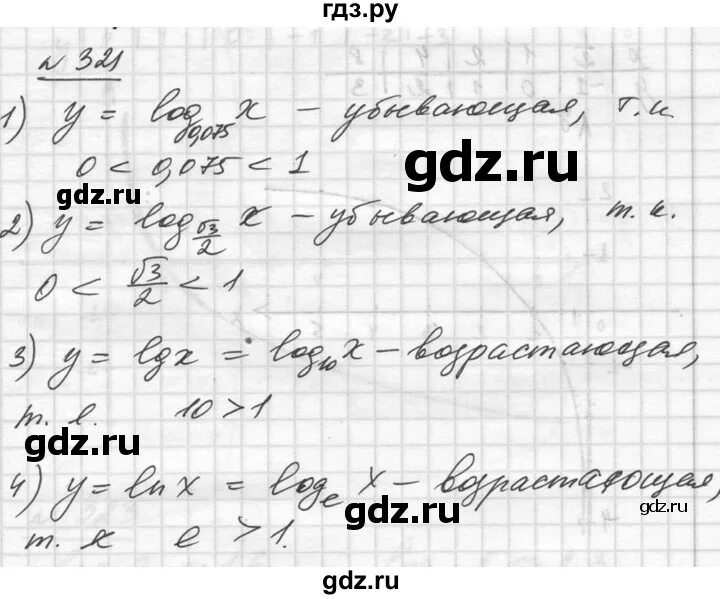 гдз.ру
№ 321
1) y = log₀,₀₇₅ x – убывающая, т.к
0 < 0,075 < 1
gdz.ru
gdz.ru
2) y = log_(√3/2) x – убывающая, т.к.
0 < √3/2 < 1
3) y = lgx = log₁₀ x – возрастающая,
т. к. 10 > 1
gdz.ru
gdz.ru
4) y = ln x = logₑ x – возрастающая,
gdz.ru
т. к e > 1.
gdz.ru